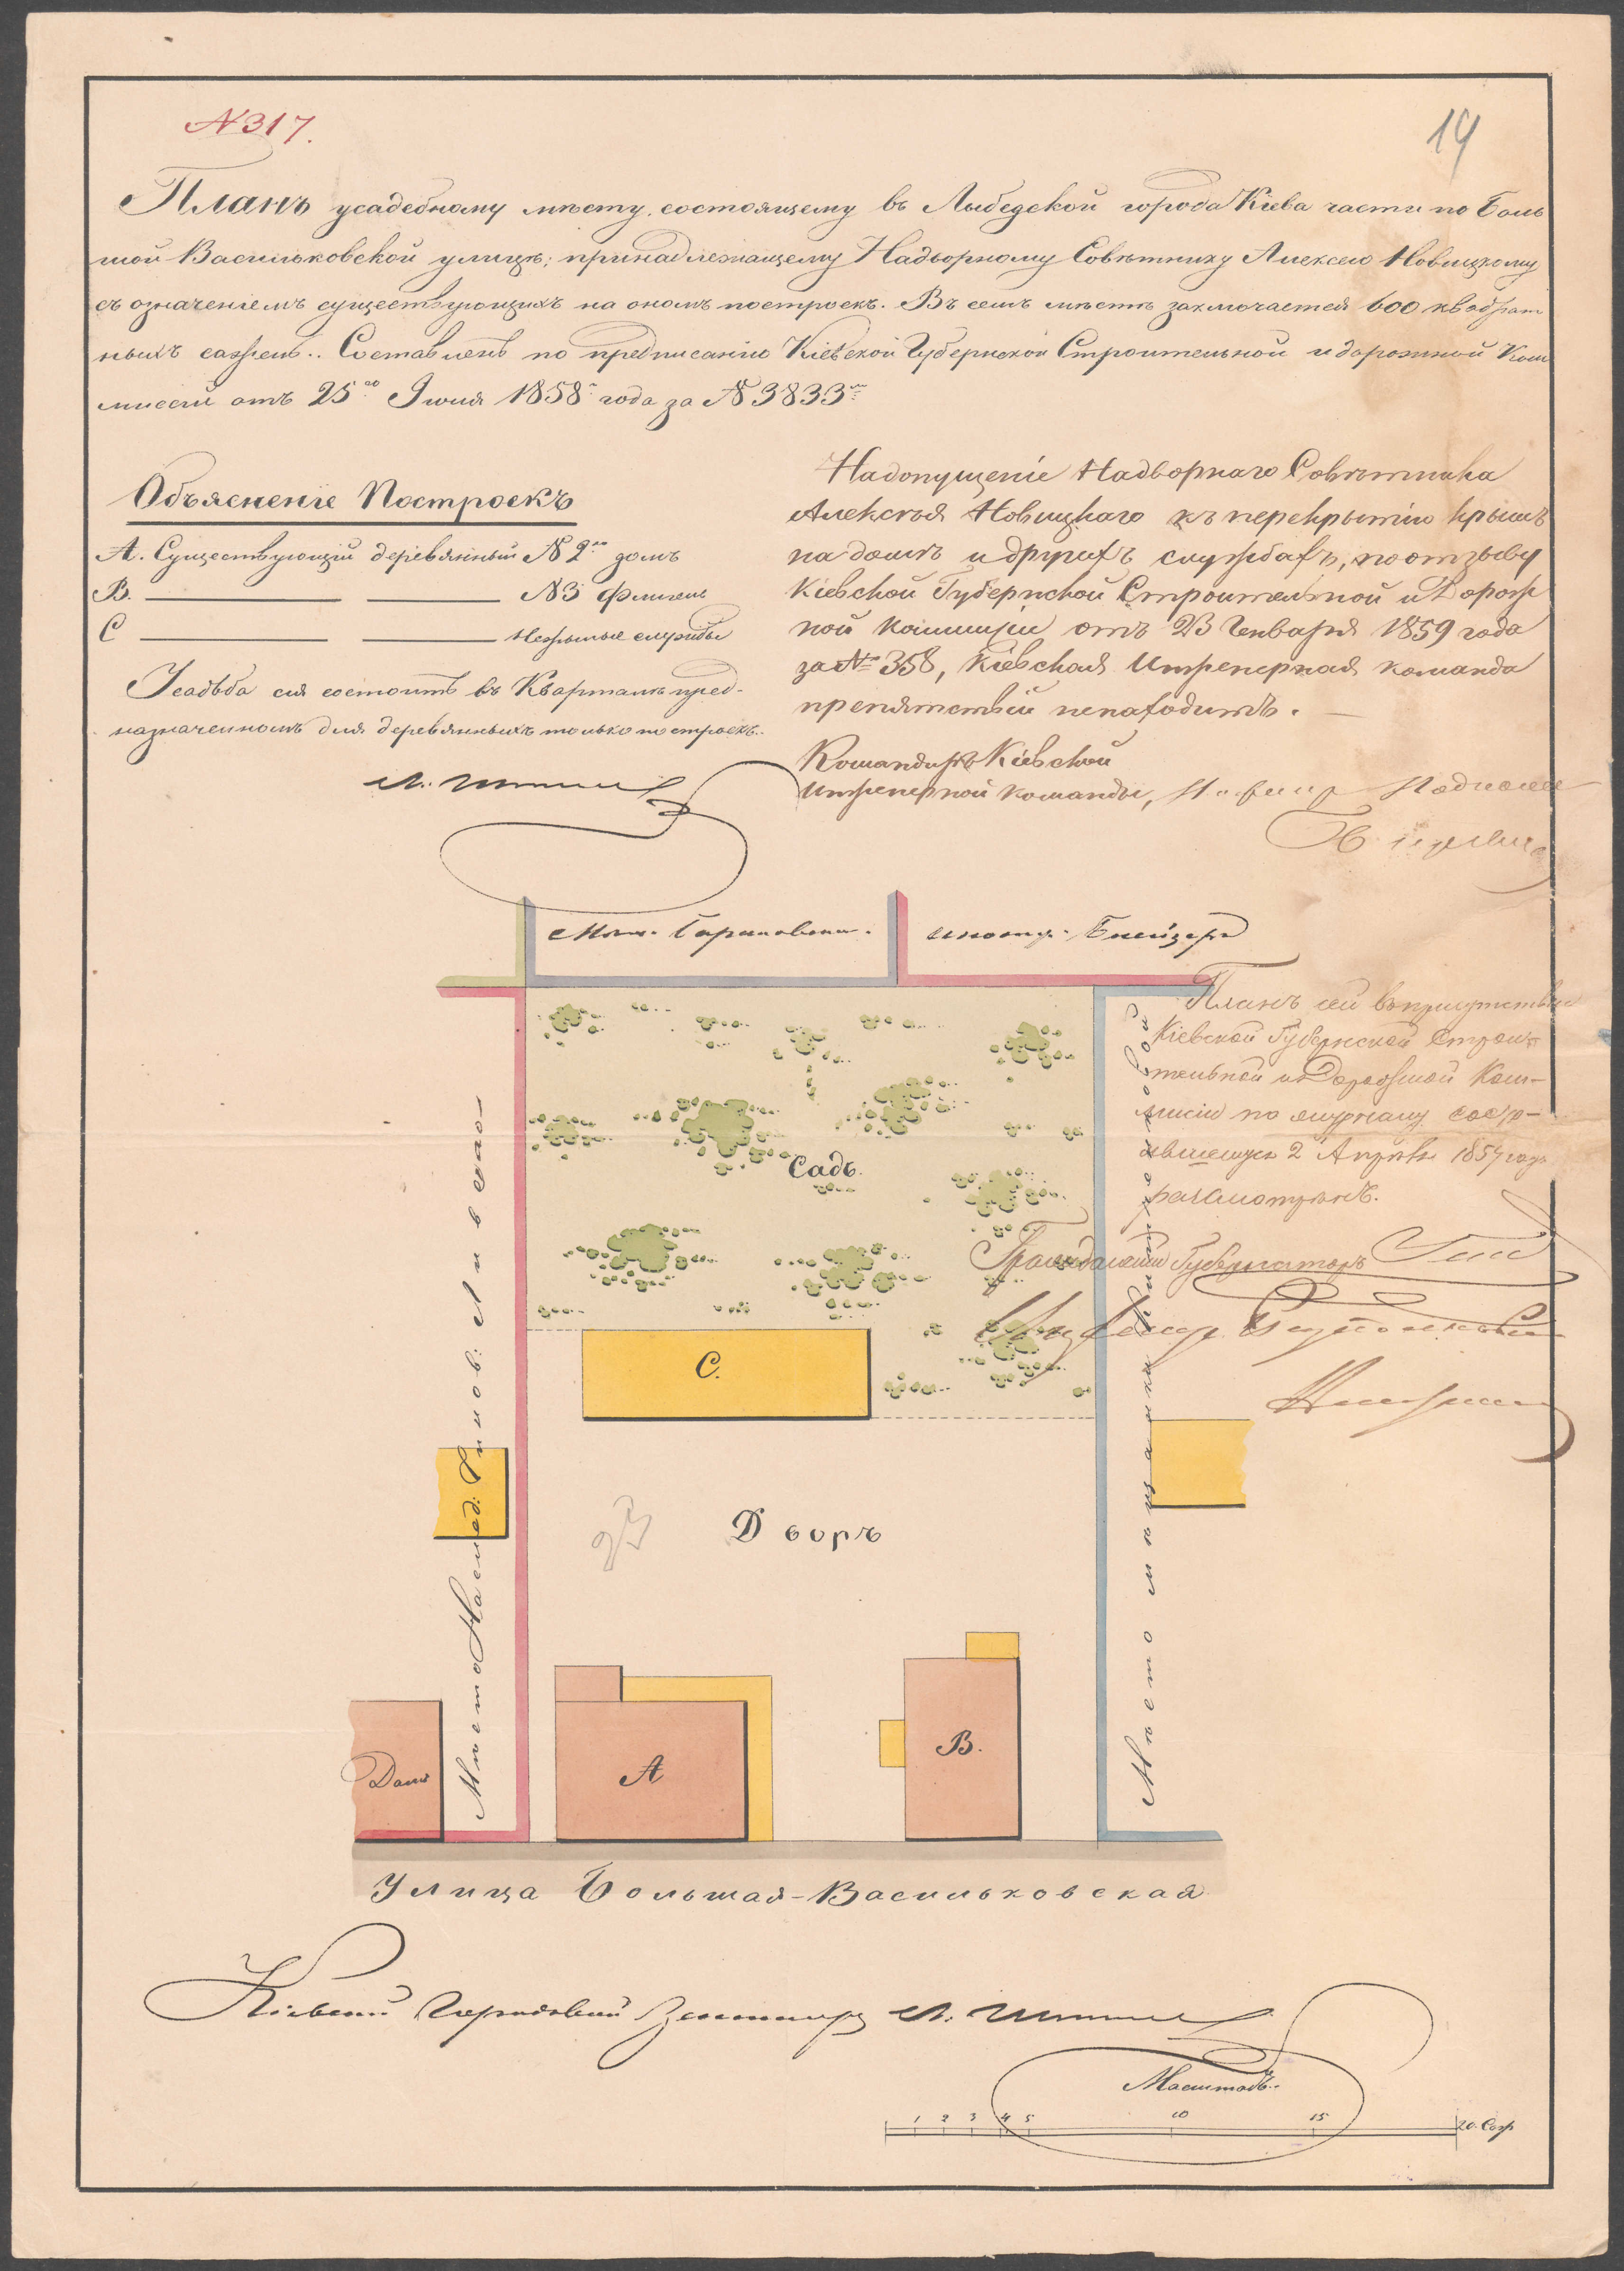 N 317.
19
Планъ усадебному мѣсту, состоящему въ Лыбедской города Кіева части по Боль
шой Васильковской улицѣ; принадлежащему Надворному Совѣтнику Алексею Новицкому
съ означеніемъ существующихъ на ономъ построекъ. Въ семъ мѣстѣ заключается 600 квадрат
ныхъ сажень.. Составленъ по предписанію Кіевской Губернской Строительной и дорожной Ком
миссіи отъ 25го Іюня 1858 года за N 3833
Объясненіе Построекъ
А. Существующій деревянный N 2й домъ
В. N 3 флигель
С нежилые службы
Усадьба сія состоитъ въ Кварталѣ пред-
назначенномъ для деревянныхъ только построекъ.
Надопущеніе Надворнаго Совѣтника
Алексѣя Новицкаго къ перекрытію крышъ
на домѣ и другихъ службахъ, по отзыву
Кіевской Губернской Строительной и Дорож
ной Коммиссіи отъ 23 Генваря 1859 года
за № 358, Кіевская Инженерная команда
препятствій ненаходитъ.
Командиръ Кіевской
Инженерной команды,
Планъ сей въ присутствіи
Кіевской Губернской Строи
тельной и Дорожной Ком-
мисіи по журналу состо-
явшемуся 2 Апрѣля 1859 года
разсмотрѣнъ.
Гражданскій Губернаторъ
Садъ.
С.
Дворъ
23
Домъ
А
В.
Мѣсто
Мѣсто мѣщанки
Улица Большая-Васильковская
Кіевскій Городовой Землемѣръ
Масштабъ.
1 2 3 4 5 10 15 20. Саж